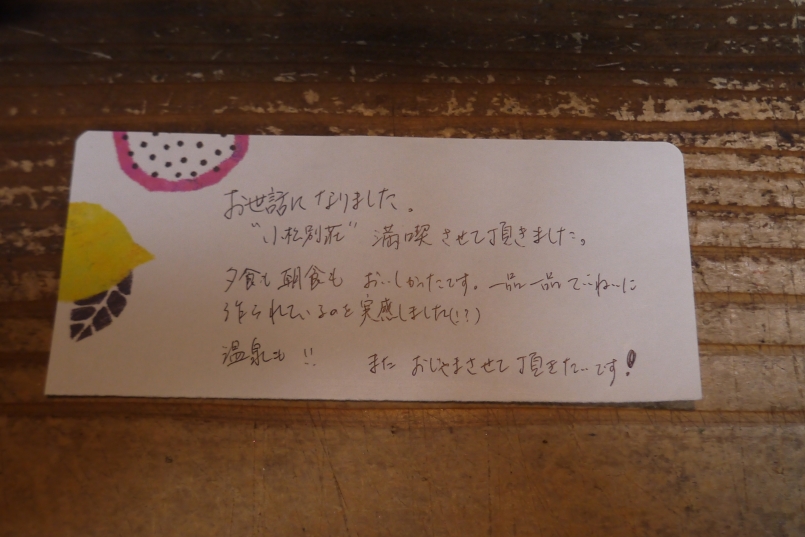 お世話になりました。
"小松別荘" 満喫させて頂きました。
夕食も朝食も おいしかったです。一品一品でいねいに
作られているのを実感しました(!?)
温泉も!! また おじゃまさせて頂きたいです!